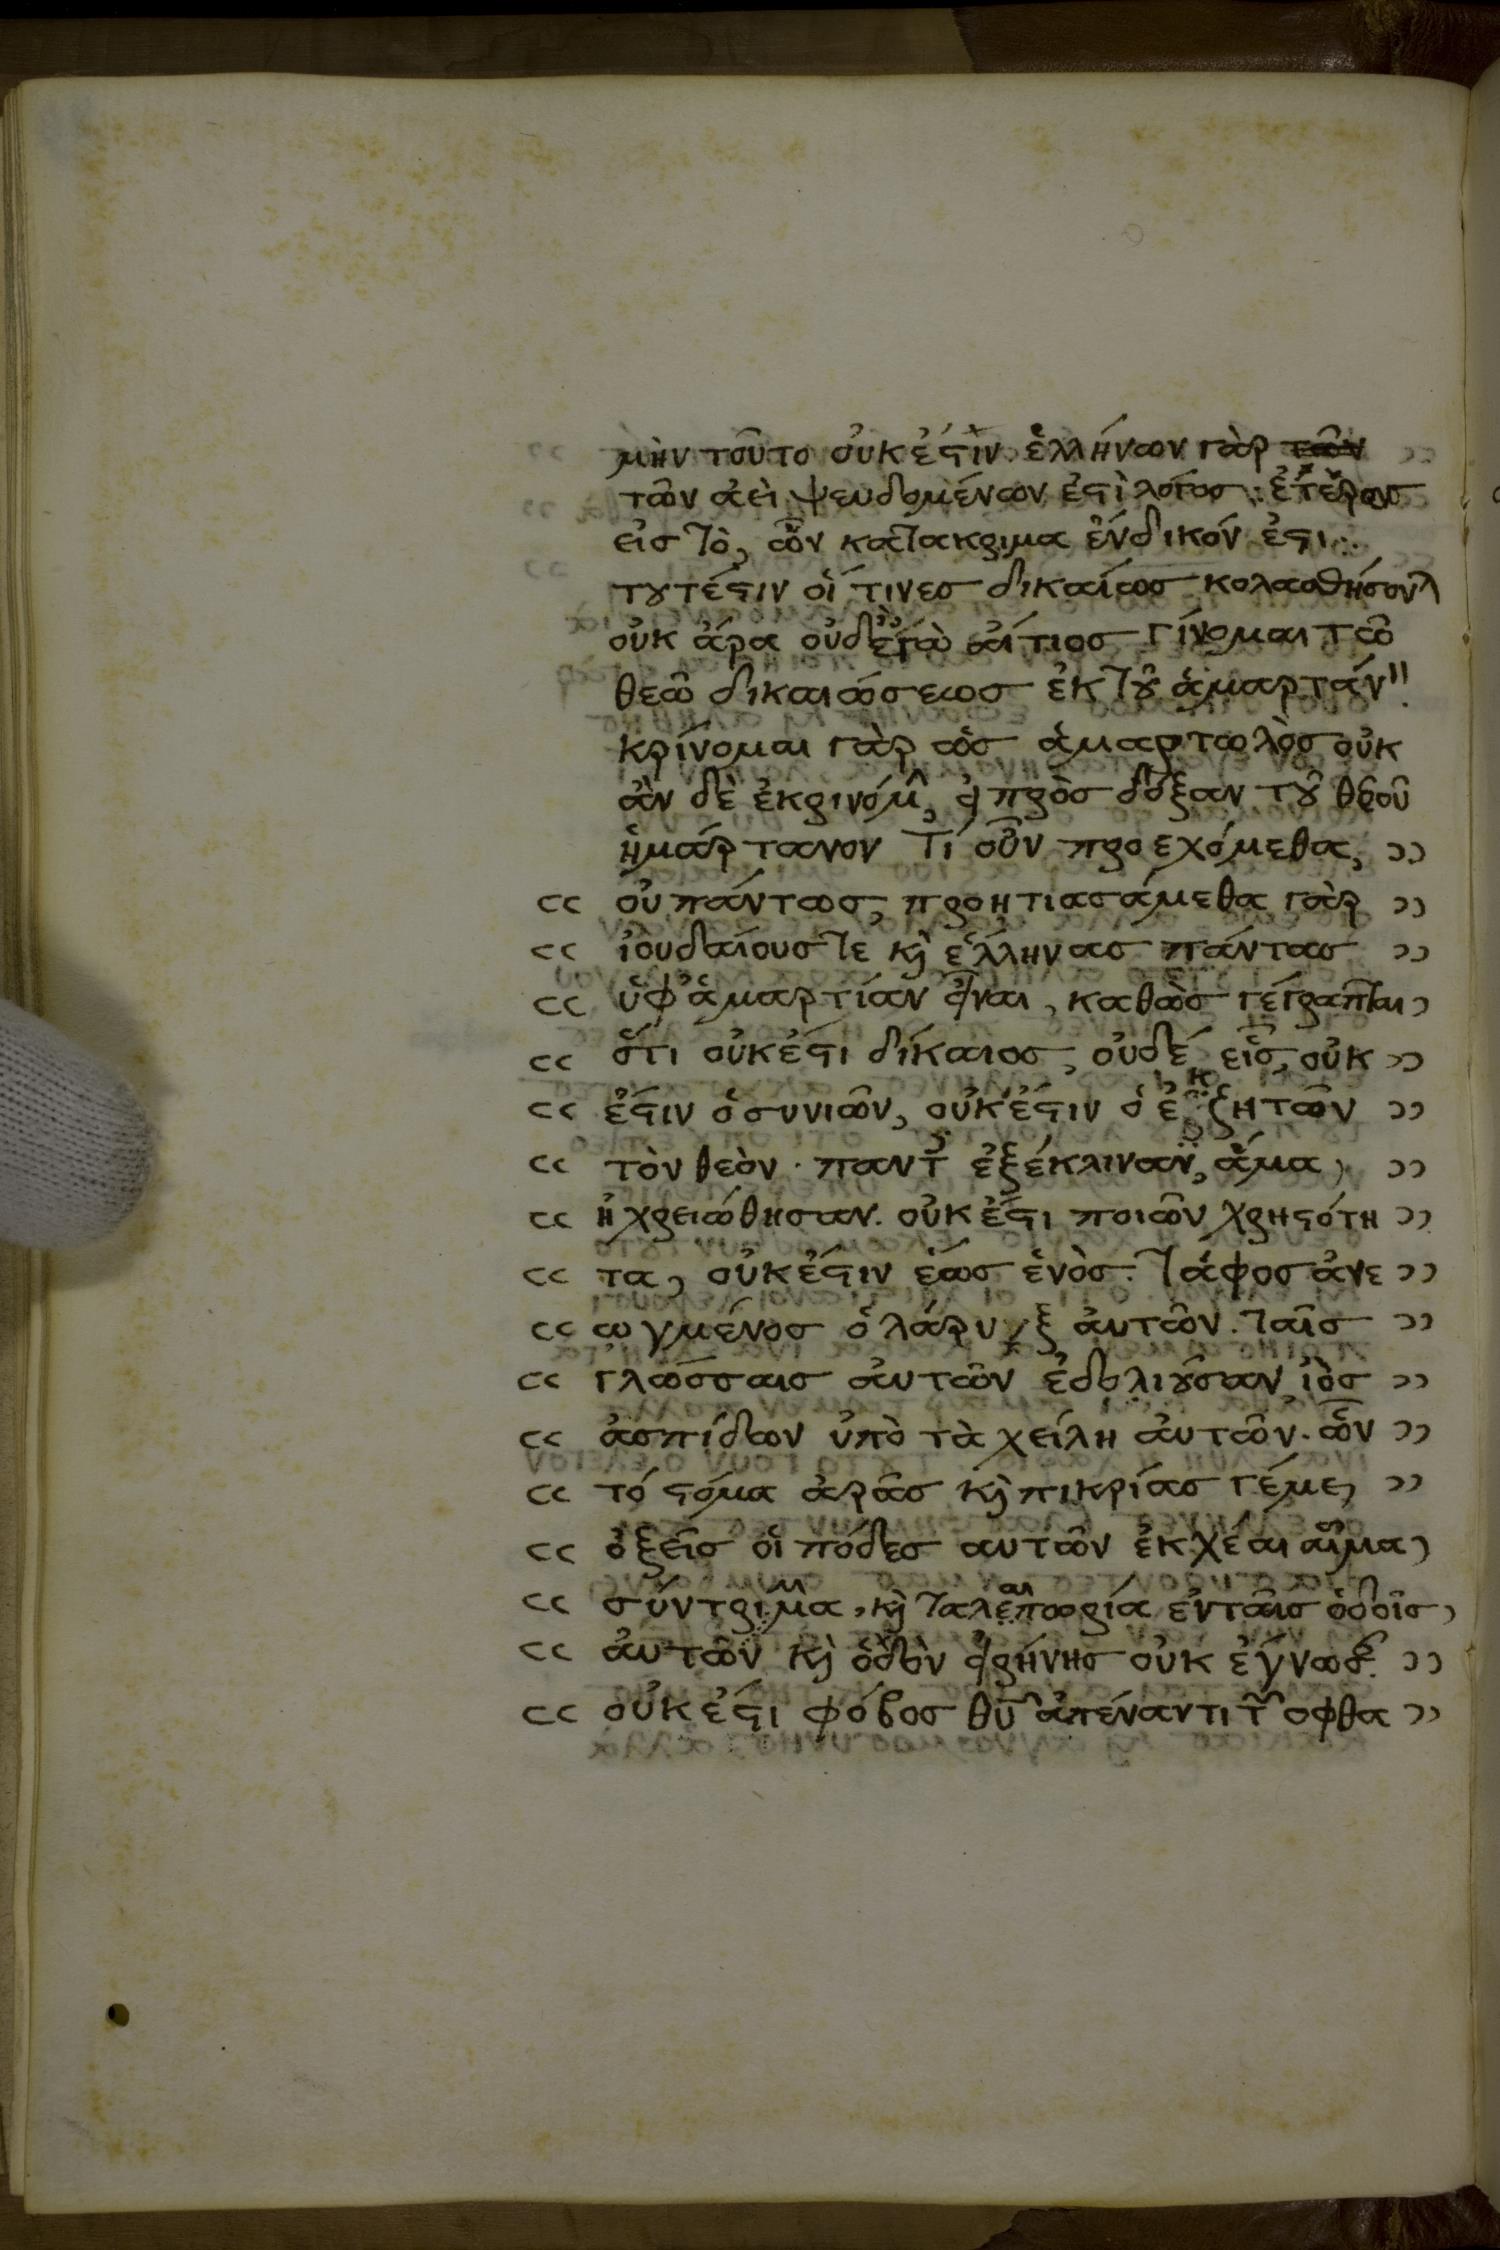 μὴν τοῦτο οὐκ ἔστιν. ἑλλήνων γὰρ τῶν
τῶν ἀεὶ ψευδομένων ἐστὶ λόγος: ἑτέρως
εἰς τὸ, ὧν κατάκριμα ἔνδικόν ἐστι:.
τουτέστιν οἵ τινες δικαίως κολασθήσοντ
οὐκ ἄρα οὐδὲ ἐγὼ αἴτιος γίνομαι τῶ
θεῶ δικαιώσεως ἐκ τοῦ ἁμαρτάν"
κρίνομαι γὰρ ὡς ἁμαρτωλὸς οὐκ
ἂν δὲ ἐκρινόμ, εἰ πρὸς δόξαν τοῦ θεοῦ
ἡμάρτανον Τί οὖν προεχόμεθα, ››
‹‹ οὐ πάντως, προητιασάμεθα γὰρ ››
‹‹ ἰουδαίους τε κὶ ἕλληνας πάντας ››
‹‹ ὑφ' ἁμαρτίαν εἶναι, καθὼς γέγραπται ›
‹‹ ὅτι οὐκ ἔστι δίκαιος, οὐδέ εἷς, οὐκ ››
‹‹ ἔστιν ὁ συνιῶν, οὐκ ἔστιν ὁ ἐκζητῶν ››
‹‹ τὸν θεὸν. παντ ἐξέκλιναν, ἅμα, ››
‹‹ ἠχρειώθησαν. οὐκ ἔστι ποιῶν χρηστότη ››
‹‹ τα, οὐκ ἔστιν ἕως ἑνὸς. τάφος ἀνε ››
‹‹ ωγμένος ὁ λάρυγξ ἀυτῶν. ταῖς ››
‹‹ γλώσσαις ἀυτῶν ἐδολιοῦσαν ἰὸς ››
‹‹ ἀσπίδων ὑπὸ τὰ χείλη ἀυτῶν. ὧν ››
‹‹ τό στόμα ἀρᾶς κὶ πικρίας γέμει ››
‹‹ ὀξεῖς οἱ πόδες αυτῶν ἐκχέαι αἷμα ›
‹‹ σύντριμμα, κὶ ταλαιπωρία ἐν ταῖς ὁδοῖς, ›
‹‹ ἀυτῶν κὶ ὁδὸν εἰρήνης οὐκ ἔγνωσ. ››
‹‹ οὐκ ἔστι φόβος θῦ ἀπέναντι τ ὀφθα ››